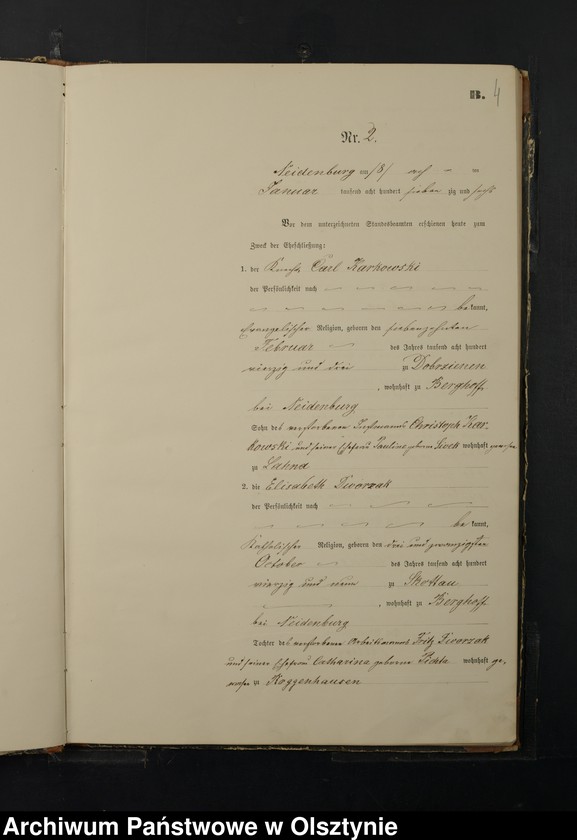 B. 4
Nr. 2.
Neidenburg am /8/ acht ten
Januar tausend acht hundert sieben zig und sechs
Vor dem unterzeichneten Standesbeamten erschienen heute zum
Zweck der Eheschließung:
1. der Knecht Carl Karkowski
der Persönlichkeit nach
be kannt,
evangelischer Religion, geboren den siebenzehnten
Februar des Jahres tausend acht hundert
vierzig und drei zu Dobrzienen
, wohnhaft zu Berghoff
bei Neidenburg
Sohn des verstorbenen Instmanns Christoph Kar-
kowski und seiner Ehefrau Pauline geborne wohnhaft gewesen
zu Lahna
2. die Elisabeth Dworzak
der Persönlichkeit nach
be kannt,
Katholischer Religion, geboren den drei und zwanzigsten
October des Jahres tausend acht hundert
vierzig und neun zu Skottau
, wohnhaft zu Berghoff
bei Neidenburg
Tochter des verstorbenen Arbeitsmanns Fritz Dworzak
und seiner Ehefrau Catharina geborne wohnhaft ge-
wesen zu Roggenhausen
Archiwum Państwowe w Olsztynie